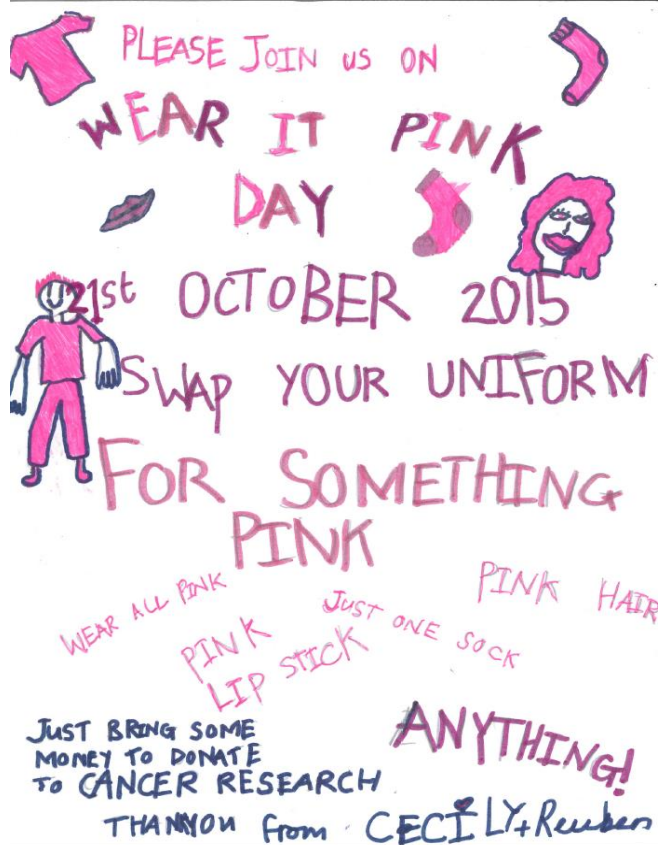 PLEASE JOIN US ON
WEAR IT PINK
DAY
21st OCTOBER 2015
SWAP YOUR UNIFORM
FOR SOMETHING
PINK
WEAR ALL PINK
PINK
LIP STICK
JUST ONE SOCK
PINK HAIR
ANYTHING!
JUST BRING SOME
MONEY TO DONATE
TO CANCER RESEARCH
THANKYOU from CECILY+Reuben